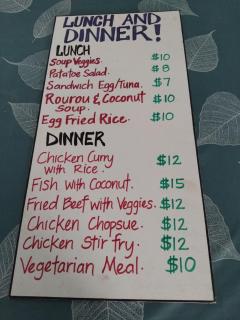 LUNCH AND
DINNER!
LUNCH
Soup Veggies. $10
Patatoe Salad. $8
Sandwich Egg/Tuna. $7
Rourou & Coconut $10
Soup.
Egg Fried Rice. $10
DINNER
Chicken Curry $12
with Rice.
Fish with Coconut. $15
Fried Beef with Veggies. $12
Chicken Chopsue. $12
Chicken Stir fry. $12
Vegetarian Meal. $10